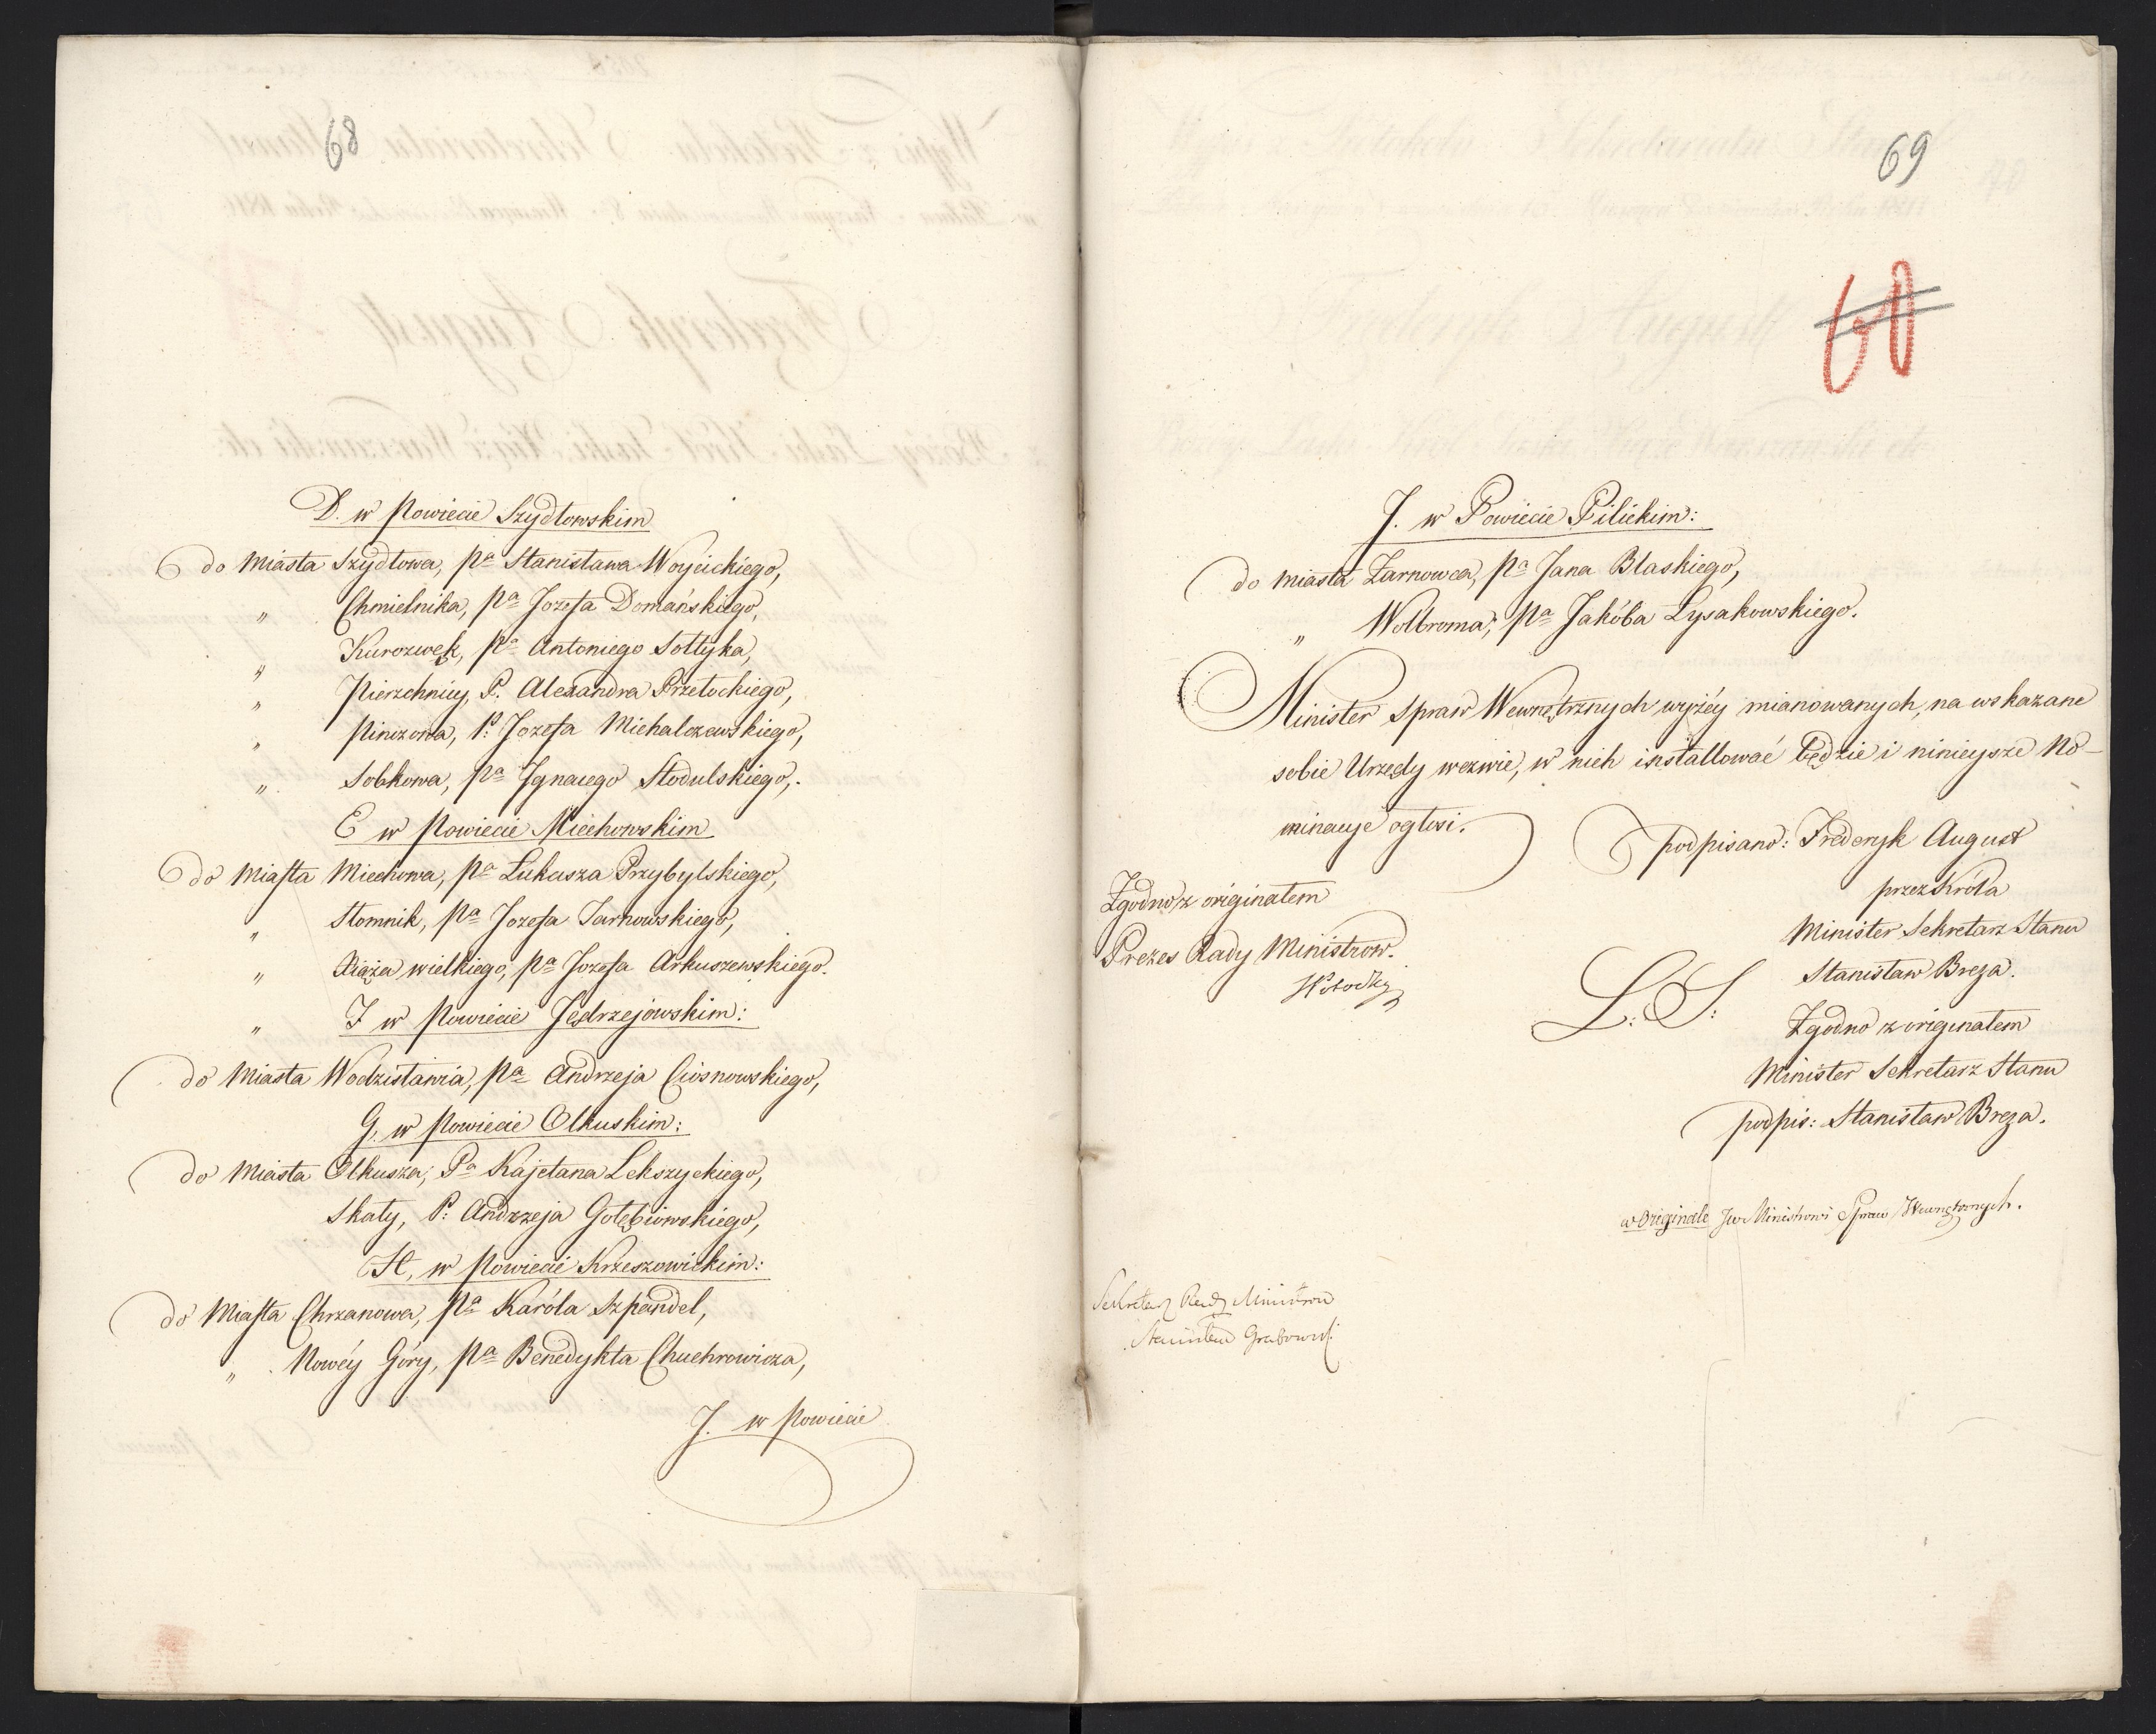 68
D. w Powiecie Szydłowskim
do Miasta Szydłowa, Pa Stanisława Woyeickiego,
" Chmielnika, Pa Jozefa Domańskiego,
" Kurozwęk, Pa Antoniego Sołtyka,
" Pierzchnicy, P. Alexandra Przełockiego,
" Pinczowa, P: Jozefa Michalczewskiego,
" Sobkowa, Pa Ignacego Stodulskiego,.
E w Powiecie Miechowskim
do Miasta Miechowa, Pa Łukasza Przybylskiego,
" Słomnik, Pa Jozefa Tarnowskiego,
" Xiąża wielkiego, Pa Jozefa Arkuszewskiego.
" F w Powiecie Jędrzejowskim:
do Miasta Wodzisławia, Pa Andrzeja Ciosnowskiego,
G. w Powiecie Olkuskim:
do Miasta Olkusza, Pa Kajetana Lekszyckiego,
Skały, P: Andrzeja Gołębiowskiego,
H, w Powiecie Krzeszowickim:
do Miasta Chrzanowa, Pa Karóla Szpandel,
" Nowéy Góry, Pa Benedykta Chuchrowicza,
J. w Powiecie
69
60
J. w Powiecie Pilickim:
do miasta Żarnowca, Pa Jana Blaskiego,
" Wolbroma, Pa Jakóba Łysakowskiego.
Minister Spraw Wewnętrznych wyżéy mianowanych, na wskazane
sobie Urzędy wezwie, w nich installować będzie i ninieysze No-
minacye ogłosi.
podpisano: Frederyk August
przez Króla
Minister Sekretarz Stanu
Stanisław Breza.
L: S:
Zgodno z originałem
Minister Sekretarz Stanu
podpis: Stanisław Breza.
Zgodno z originałem
Prezes Rady Ministrow.
w Originale Jw Ministrowi Spraw Wewnętrznych.
Sekretarz Rady Ministrow
Stanisław Grabowski